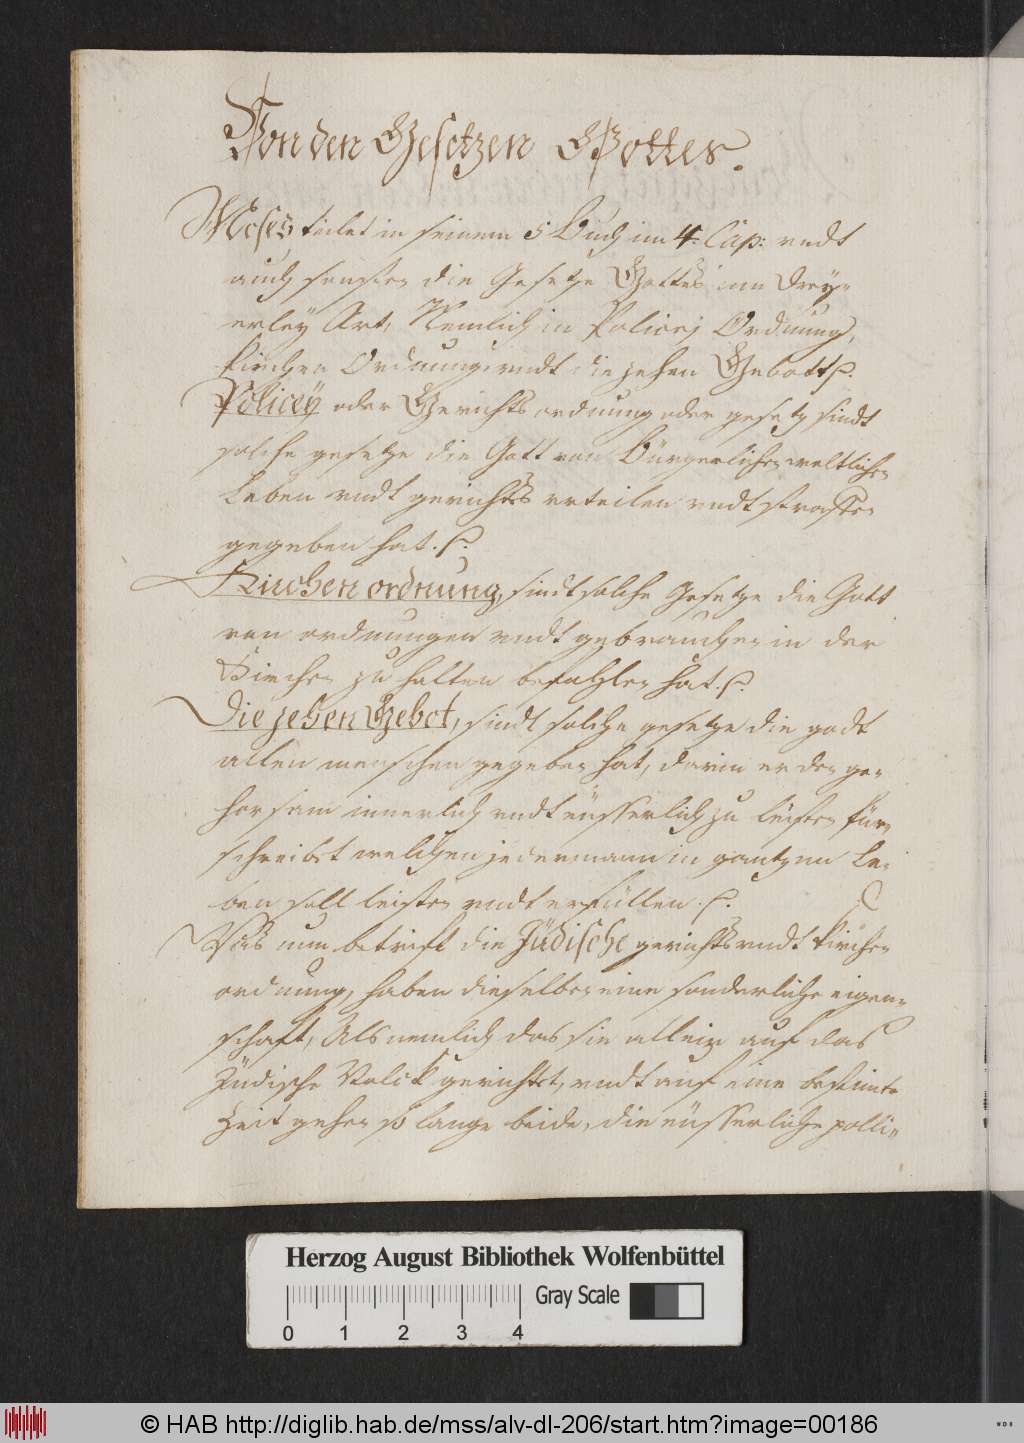 Von den Gesetzen Gottes.
Moses teilet in seinem 5 Buch im 4. Cap: vndt
auch sonsten die Gesetze Gottes inn drey-
erley Art, Nemlich in Policej Ordnung,
Kirchen Ordnung vndt die zehen Gebott.
Policey oder Gerichts ordnung oder gesetz sindt
solche gesetze die Gott von Bürgerlichen weltlichen
Leben vndt gerichts vrteilen vndt straffen
gegeben hat.
Kirchen ordnung, sindt solche Gesetze die Gott
von ordnungen vndt gebrauchen in der
Kirchen zu halten befohlen hat.
Die zehen Gebot, sindt solche gesetze die godt
allen menschen gegeben hat, darin er den ge-
horsam innerlich vndt eüsserlich zu leisten für-
schreibet welchen jedermann in gantzem Le-
ben soll leisten vndt erfüllen.
Was nun betrift die Jüdische gerichts vndt Kirchen
ordnung, haben dieselben eine sonderliche eigen-
schaft, Als nemlich das sie allein auf das
Jüdische Volck gerichtet, vndt auf eine bestimte
Zeit gehen so lange beide, die eüsserliche polli-
Herzog August Bibliothek Wolfenbüttel
Gray Scale
0 1 2 3 4
© HAB http://diglib.hab.de/mss/alv-dl-206/start.htm?image=00186